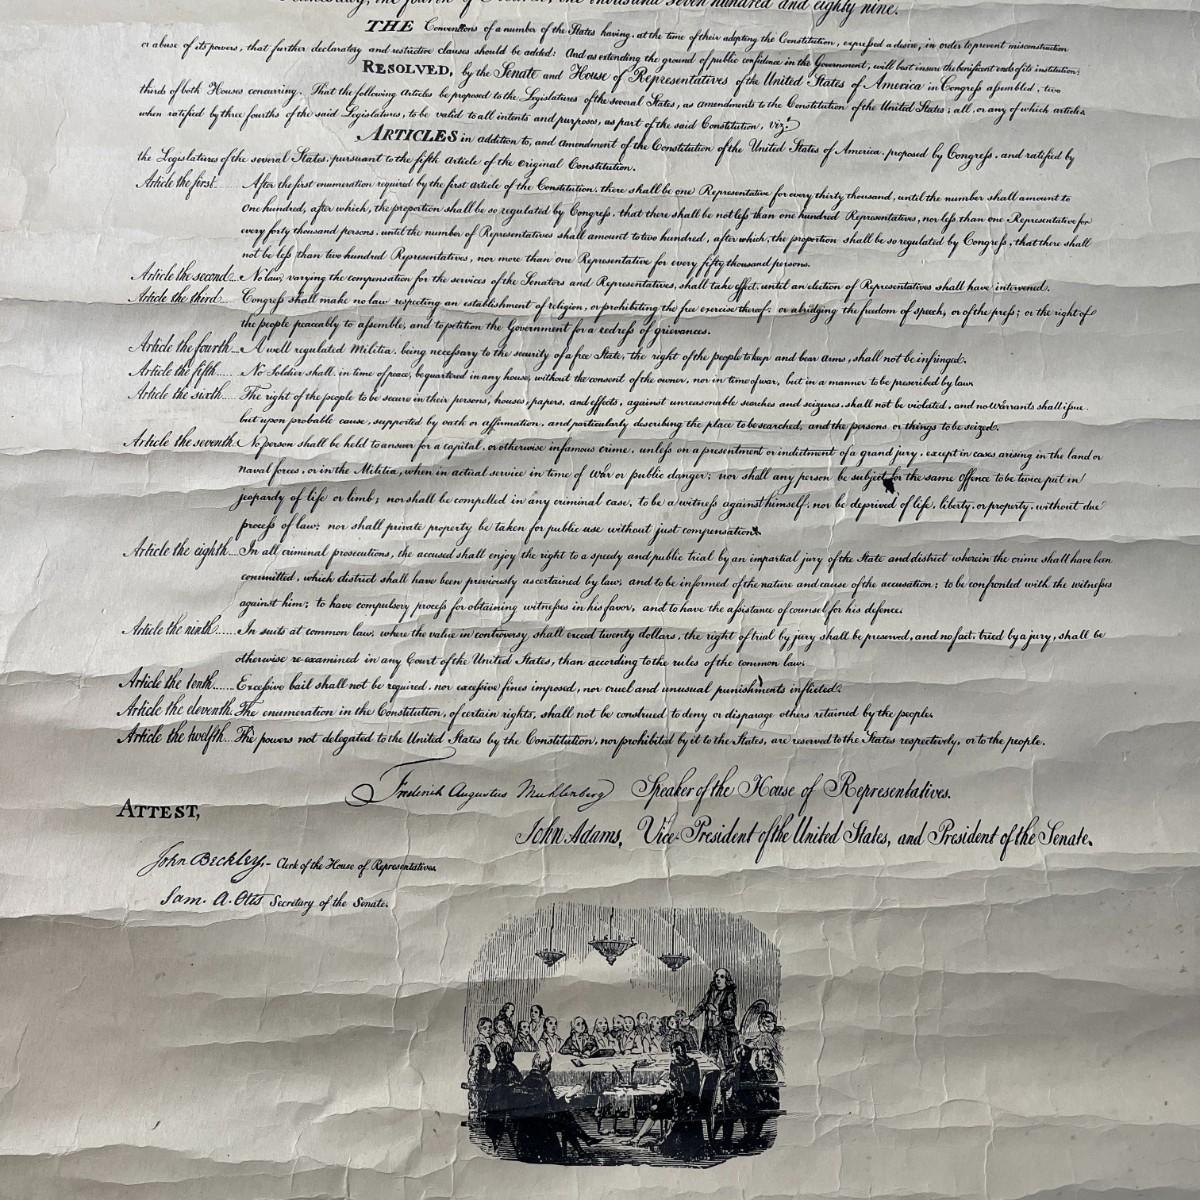 the fourth of March, one thousand seven hundred and eighty nine.
THE Conventions of a number of the States having, at the time of their adopting the Constitution, expressed a desire, in order to prevent misconstruction
or abuse of its powers, that further declaratory and restrictive clauses should be added: And as extending the ground of public confidence in the Government, will best insure the benificent ends of its institution;
RESOLVED, by the Senate and House of Representatives of the United States of America in Congress assembled, two
thirds of both Houses concurring, That the following Articles be proposed to the Legislatures of the several States, as amendments to the Constitution of the United States; all, or any of which articles,
when ratified by three fourths of the said Legislatures, to be valid to all intents and purposes, as part of the said Constitution, viz.t
ARTICLES in addition to, and amendment of the Constitution of the United States of America, proposed by Congress, and ratified by
the Legislatures of the several States, pursuant to the fifth Article of the original Constitution.
Article the first...... After the first enumeration required by the first article of the Constitution, there shall be one Representative for every thirty thousand, until the number shall amount to
one hundred, after which, the proportion shall be so regulated by Congress, that there shall be not less than one hundred Representatives, nor less than one Representative for
every forty thousand persons, until the number of Representatives shall amount to two hundred, after which, the proportion shall be so regulated by Congress, that there shall
not be less than two hundred Representatives, nor more than one Representative for every fifty thousand persons.
Article the second... No law, varying the compensation for the services of the Senators and Representatives, shall take effect, until an election of Representatives shall have intervened.
Article the third..... Congress shall make no law respecting an establishment of religion, or prohibiting the free exercise thereof; or abridging the freedom of speech, or of the press; or the right of
the people peaceably to assemble, and to petition the Government for a redress of grievances.
Article the fourth... A well regulated Militia, being necessary to the security of a free State, the right of the people to keep and bear Arms, shall not be infringed.
Article the fifth..... No Soldier shall, in time of peace, be quartered in any house, without the consent of the owner, nor in time of war, but in a manner to be prescribed by law.
Article the sixth..... The right of the people to be secure in their persons, houses, papers, and effects, against unreasonable searches and seizures, shall not be violated, and no Warrants shall issue
but upon probable cause, supported by oath or affirmation, and particularly describing the place to be searched, and the persons or things to be seized.
Article the seventh. No person shall be held to answer for a capital, or otherwise infamous crime, unless on a presentment or indictment of a grand jury, except in cases arising in the land or
naval forces, or in the Militia, when in actual service in time of War or public danger; nor shall any person be subject for the same Offence to be twice put in
jeopardy of life or limb; nor shall be compelled in any criminal case, to be a witness against himself, nor be deprived of life, liberty, or property, without due
process of law; nor shall private property be taken for public use without just compensation.
Article the eighth... In all criminal prosecutions, the accused shall enjoy the right to a speedy and public trial by an impartial jury of the State and district wherein the crime shall have been
committed, which district shall have been previously ascertained by law, and to be informed of the nature and cause of the accusation; to be confronted with the witnesses
against him; to have compulsory process for obtaining witnesses in his favor, and to have the assistance of counsel for his defence.
Article the ninth...... In suits at common law, where the value in controversy shall exceed twenty dollars, the right of trial by jury shall be preserved, and no fact, tried by a jury, shall be
otherwise re-examined in any Court of the United States, than according to the rules of the common law.
Article the tenth...... Excessive bail shall not be required, nor excessive fines imposed, nor cruel and unusual punishments inflicted.
Article the eleventh. The enumeration in the Constitution, of certain rights, shall not be construed to deny or disparage others retained by the people.
Article the twelfth... The powers not delegated to the United States by the Constitution, nor prohibited by it to the States, are reserved to the States respectively, or to the people.
Frederick Augustus Muhlenberg Speaker of the House of Representatives.
ATTEST,
John Adams, Vice-President of the United States, and President of the Senate.
John Beckley,- Clerk of the House of Representatives.
Sam. A. Otis Secretary of the Senate.